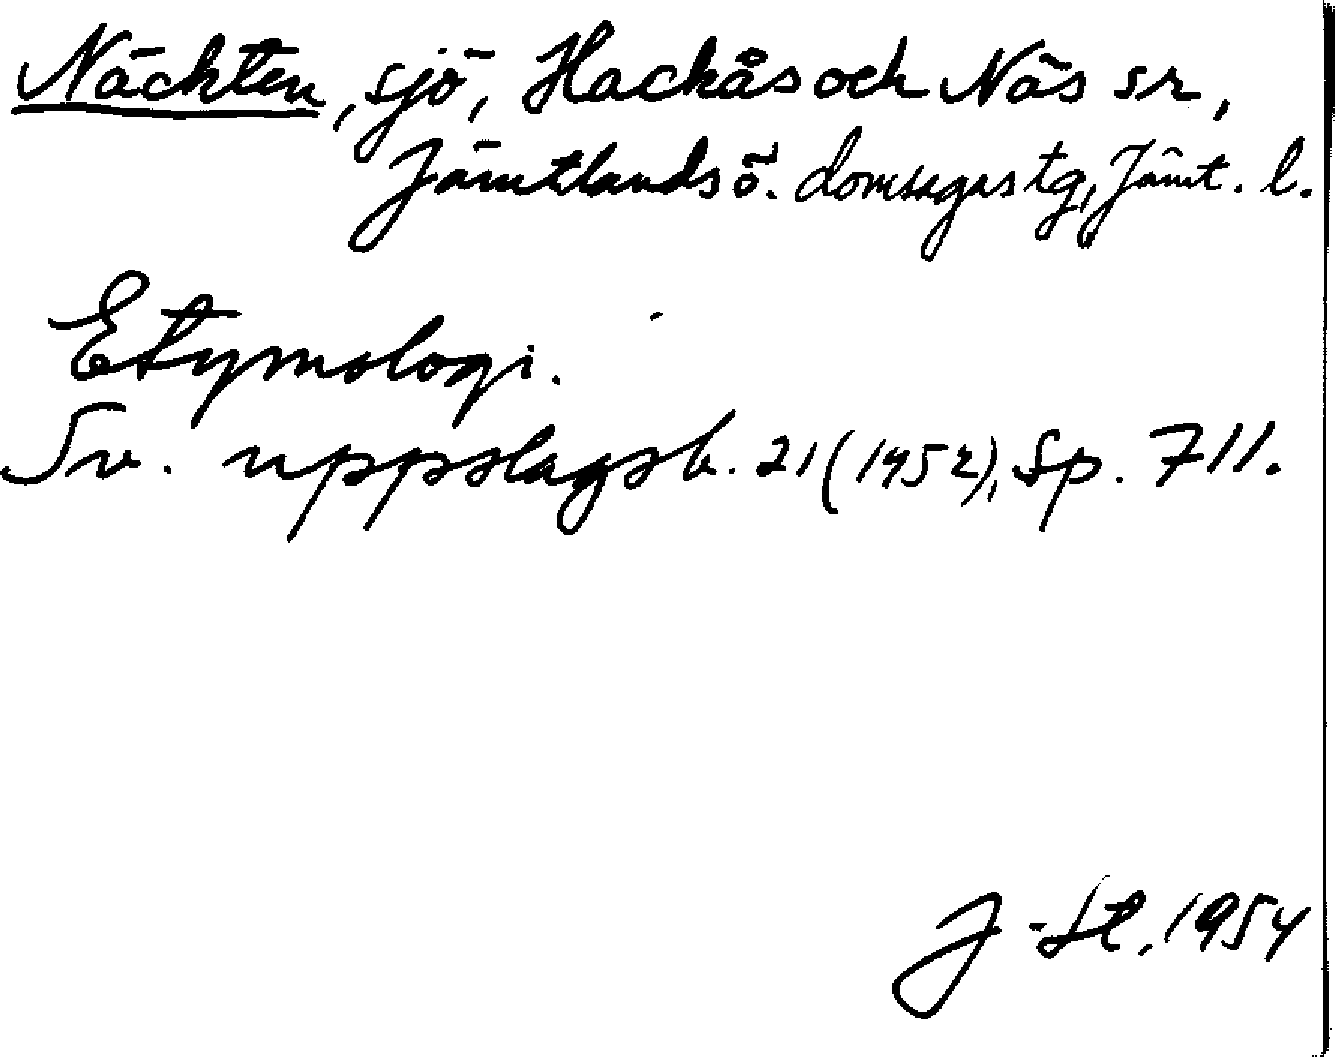 Näckten, sjö, Hackås och Näs sr,
Jämtlands ö. domsagas tg, Jämt. l.
Etymologi.
Sv. uppslagsb. 21 (1952), Sp. 711.
J-St. 1954